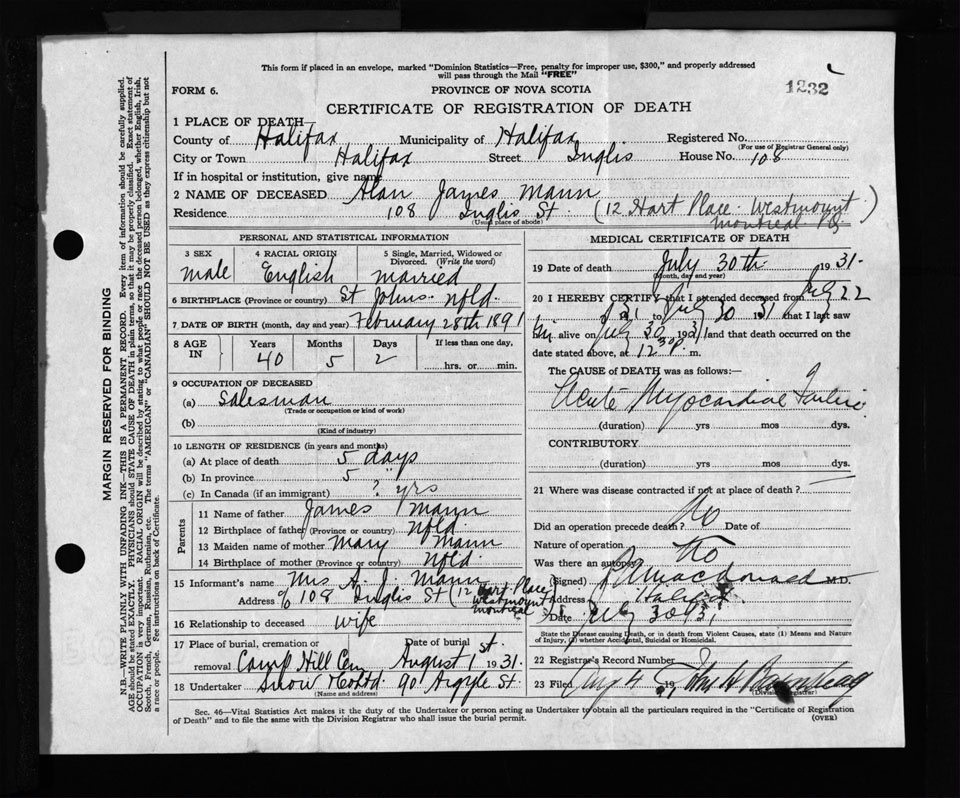 This form if placed in an envelope, marked "Dominion Statistics—Free, penalty for improper use, $300," and properly addressed
will pass through the Mail "FREE"
1232
FORM 6.
PROVINCE OF NOVA SCOTIA
CERTIFICATE OF REGISTRATION OF DEATH
1 PLACE OF DEATH—
County of Halifax Municipality of Halifax Registered No.
(For use of Registrar General only)
City or Town Halifax Street Inglis House No. 108
If in hospital or institution, give name
2 NAME OF DECEASED Alan James Mann
Residence 108 Inglis St. (12 Hart Place. Westmount
Montreal PQ)
(Usual place of abode)
PERSONAL AND STATISTICAL INFORMATION
3 SEX male
4 RACIAL ORIGIN English
5 Single, Married, Widowed or
Divorced. (Write the word)
married
6 BIRTHPLACE (Province or country) St Johns. Nfld.
7 DATE OF BIRTH (month, day and year) February 28th 1891
8 AGE IN Years 40 Months 5 Days 2 If less than one day,
hrs. or min.
9 OCCUPATION OF DECEASED
(a) Salesman
(Trade or occupation or kind of work)
(b)
(Kind of industry)
10 LENGTH OF RESIDENCE (in years and months)
(a) At place of death 5 days
(b) In province 5 "
(c) In Canada (if an immigrant) ? yrs
Parents
11 Name of father James Mann
12 Birthplace of father (Province or country) Nfld.
13 Maiden name of mother Mary Mann
14 Birthplace of mother (Province or country) Nfld
15 Informant's name Mrs A. J. Mann
Address c/o 108 Inglis St (12 Hart Place
Westmount
Montreal
16 Relationship to deceased wife
17 Place of burial, cremation or
removal Camp Hill Cem Date of burial August 1st 1931.
18 Undertaker Snow & Co Ltd 90 Argyle St.
(Name and address)
MEDICAL CERTIFICATE OF DEATH
19 Date of death July 30th 1931.
(Month, day and year)
20 I HEREBY CERTIFY that I attended deceased from July 22
1931 to July 30 1931 that I last saw
him alive on July 30 1931 and that death occurred on the
date stated above, at 12 30 p. m.
The CAUSE of DEATH was as follows:—
Acute Myocardial Failure
(duration) yrs mos dys.
CONTRIBUTORY
(duration) yrs mos dys.
21 Where was disease contracted if not at place of death?
Did an operation precede death? No Date of
Nature of operation
Was there an autopsy? No
(Signed) Macdonald M.D.
Address Halifax
Date July 30 1931
State the Disease causing Death, or in death from Violent Causes, state (1) Means and Nature
of Injury, (2) whether Accidental, Suicidal or Homicidal.
22 Registrar's Record Number
23 Filed Aug 4 19 John H
(Division Registrar)
Sec. 46—Vital Statistics Act makes it the duty of the Undertaker or person acting as Undertaker to obtain all the particulars required in the "Certificate of Registration
of Death" and to file the same with the Division Registrar who shall issue the burial permit.
(OVER)
MARGIN RESERVED FOR BINDING
N.B.—WRITE PLAINLY WITH UNFADING INK—THIS IS A PERMANENT RECORD. Every item of information should be carefully supplied.
AGE should be stated EXACTLY. PHYSICIANS should STATE CAUSE OF DEATH in plain terms, so that it may be properly classified. Exact statement of
OCCUPATION is very important. RACIAL ORIGIN will be described by stating to what people or race the deceased person belonged, whether English, Irish,
Scotch, French, German, Russian, Ruthenian, etc. The terms "AMERICAN" or "CANADIAN" SHOULD NOT BE USED as they express citizenship but not
a race or people. See instructions on back of Certificate.